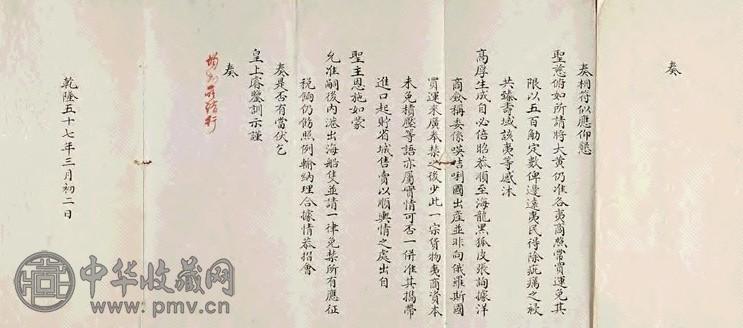 奏
奏相符似應仰懇
聖慈俯如所請將大黃仍准各夷商照常買運免其
限以五百觔定數俾邊遠夷民得除疵癘之裖
共臻壽域該夷等感沐
高厚生成自必倍昭恭順至海龍黑狐皮張詢據洋
商僉稱委係𠸄咭唎國出產並非向俄羅斯國
買運來廣奉禁之後少此一宗貨物夷商資本
未免積壓等語亦屬實情可否一併准其攜帶
進口起貯省城售賣以順輿情之處出自
聖主恩施如蒙
允准嗣後內港出海船隻並請一律免禁所有應征
稅餉仍飭照例輸納理合據情恭摺會
奏是否有當伏乞
皇上睿鑒訓示謹
奏
乾隆五十七年三月初二日
中华收藏网
www.pmv.cn